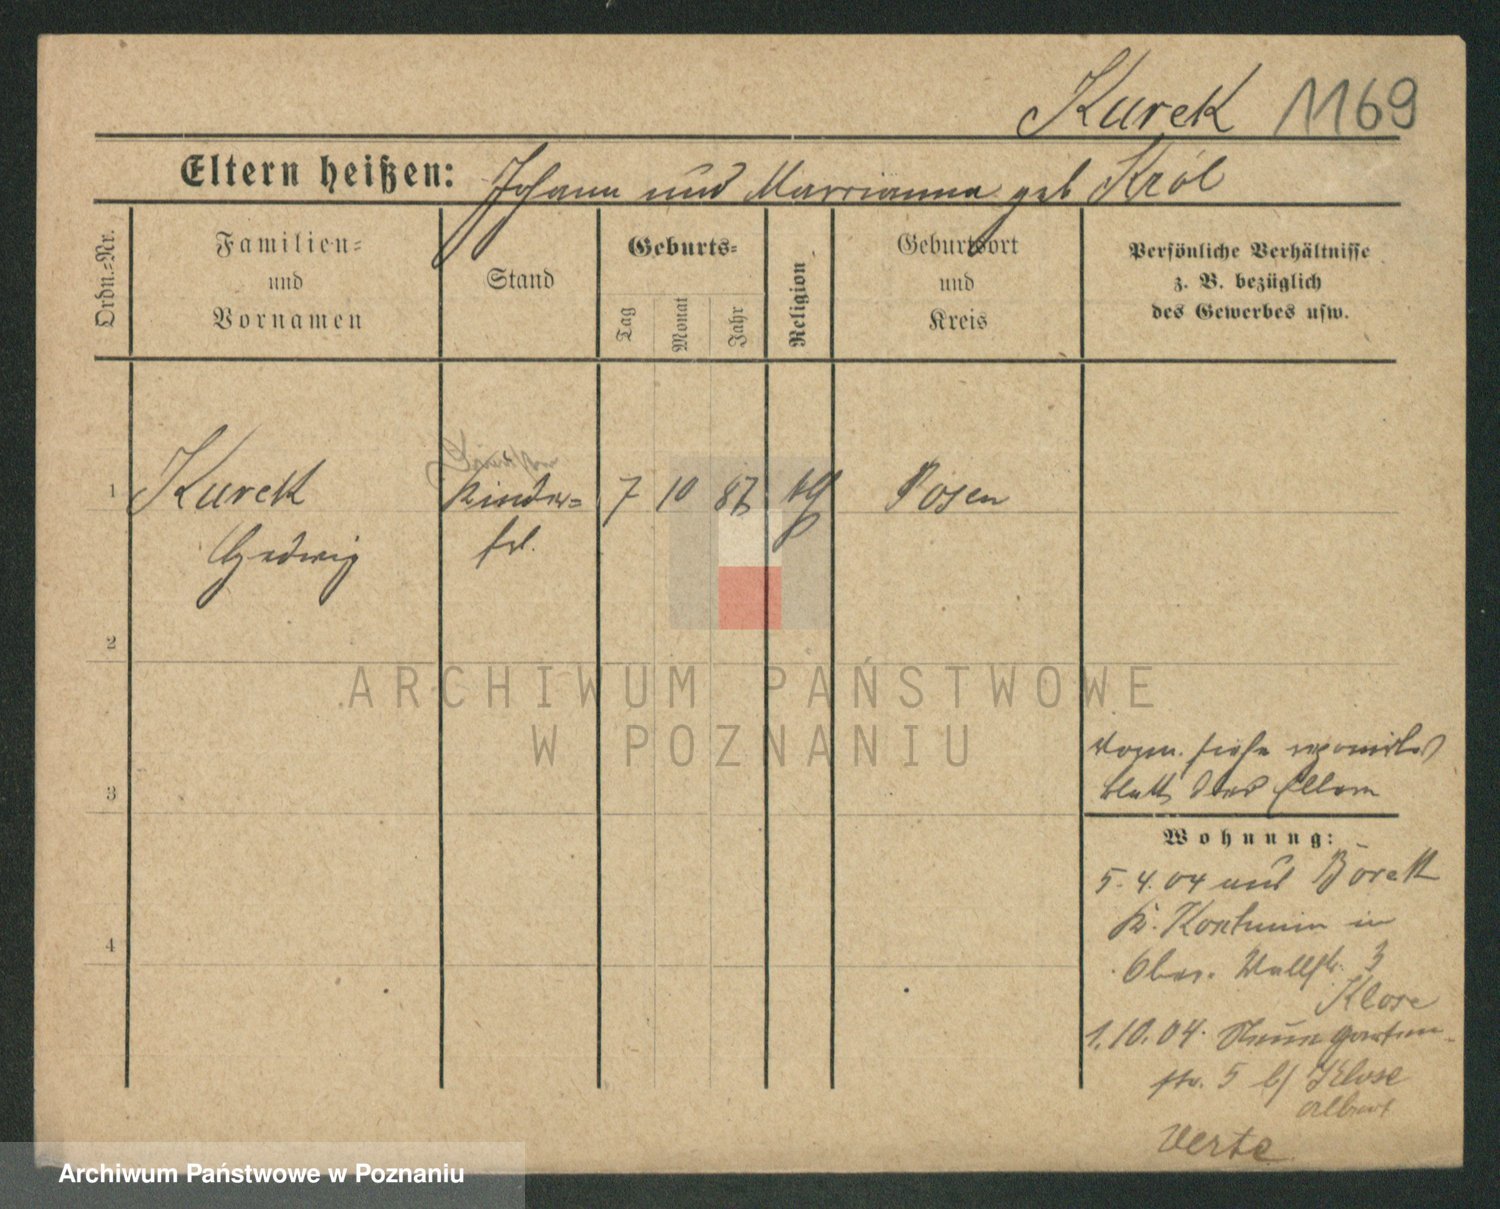 Kurek 1169
Eltern heißen: Johann und Marrianna geb Król
Ordn.=Nr.
Familien=
und
Vornamen
Stand
Geburts=
Tag
Monat
Jahr
Religion
Geburtsort
und
Kreis
Persönliche Verhältnisse
z. B. bezüglich
des Gewerbes usw.
1 Kurek Kinder= 7 10 87 Posen
Hedwig frl.
2
ARCHIWUM PAŃSTWOWE
W POZNANIU
siehe
3 blatt der Eltern
Wohnung:
5.4.04 aus Borek
K. Koschmin in
4
Wallstr. 3
Klose
1.10.04. Neue Garten
str. 5 b/ Klose
Albert
Verte
Archiwum Państwowe w Poznaniu